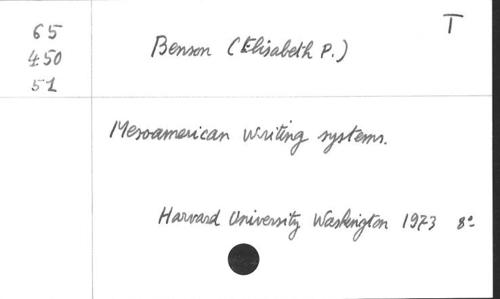 T
65
450
51
Benson (Elisabeth P.)
Mesoamerican writing systems.
Harvard University Washington 1973 8°